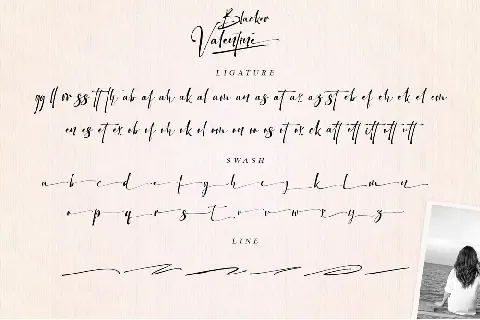 Blacker
Valentine
LIGATURE
gg ll rr ss tt fh ab af ah ak al am an as at ax az st eb ef eh ek el em
en es et ex ob of oh ok ol om on ro os ot ox ck att ett itt ott utt
SWASH
a b c d e f g h i j k l m n
o p q r s t u v w x y z
LINE